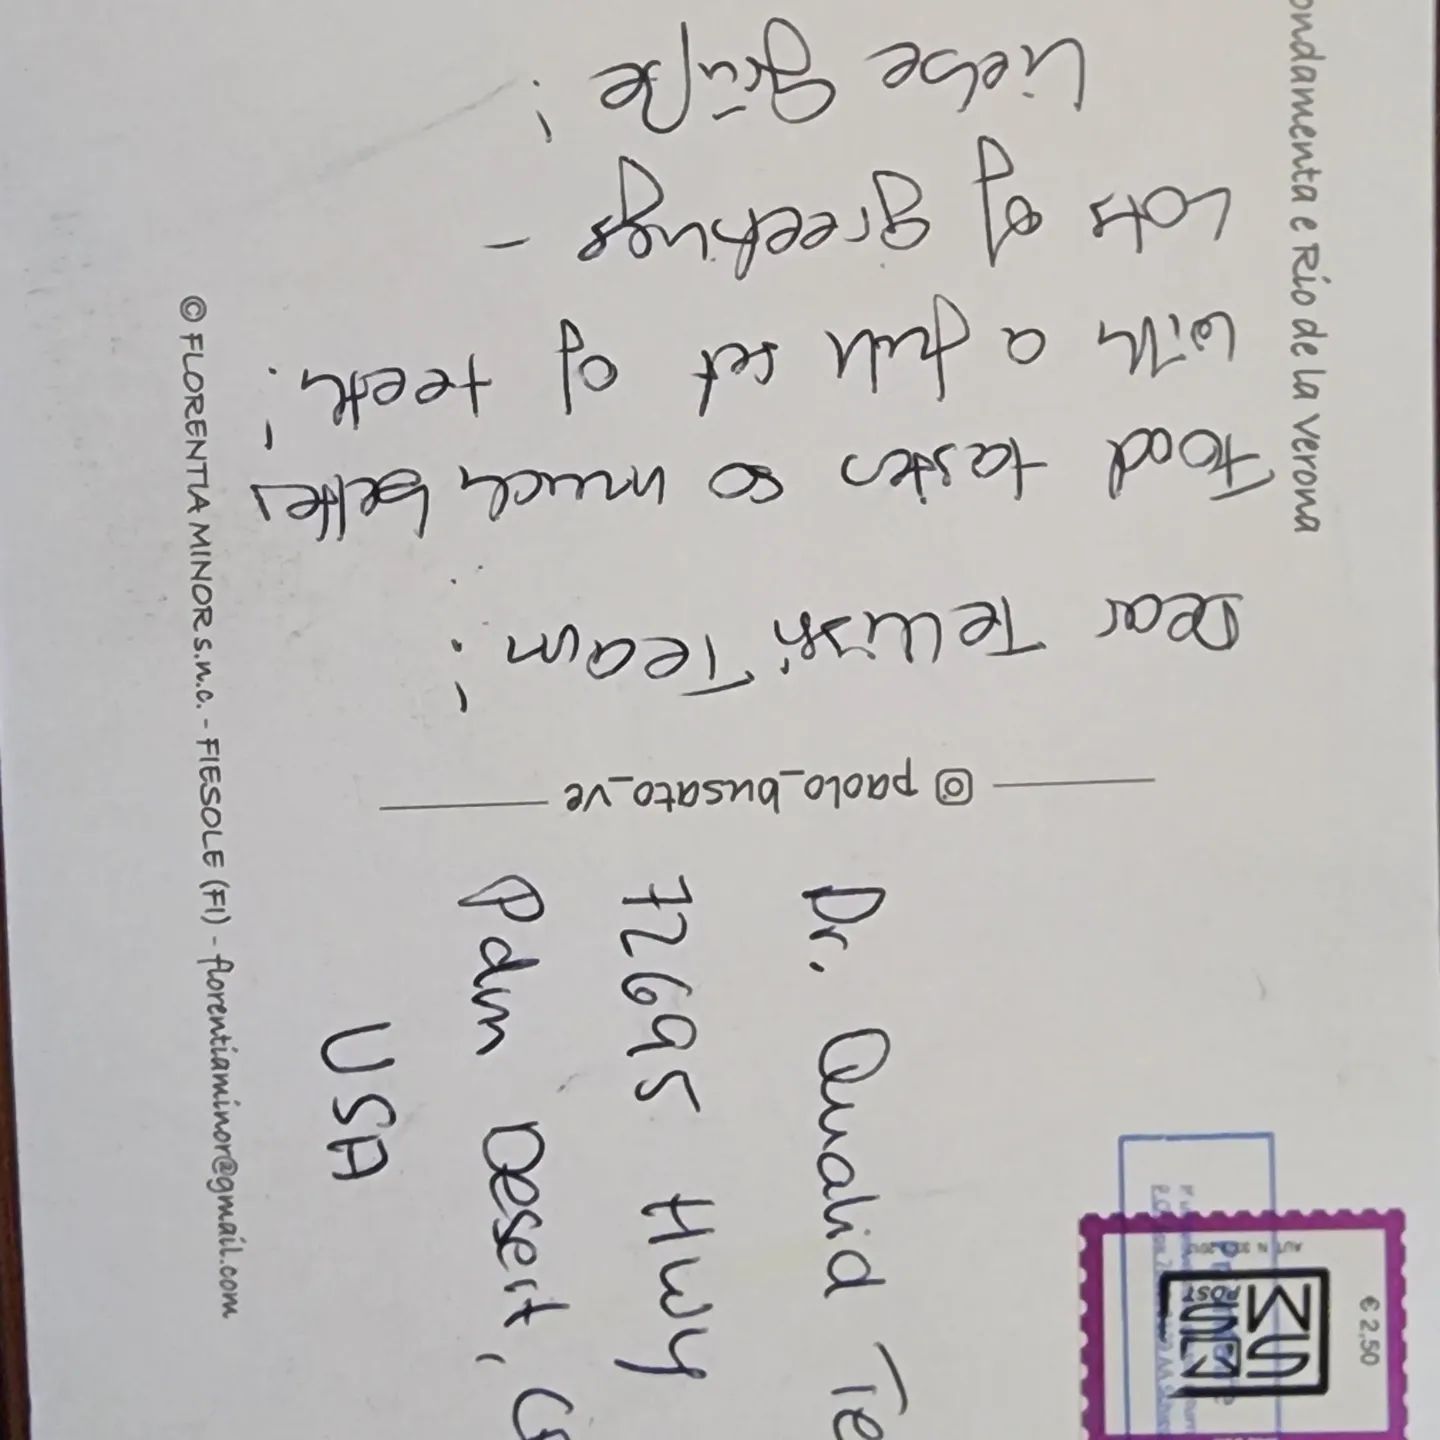 ondamenta e Rio de la verona
Dear Telissi Team!
Food tastes so much better
with a full set of teeth!
Lots of greetings -
Liebe Grüße!
paolo_busato_ve
Dr. Qualid Te
72695 Hwy
Palm Desert, C
USA
© FLORENTIA MINOR s.n.c. - FIESOLE (FI) - florentiaminor@gmail.com
€ 2,50
POST